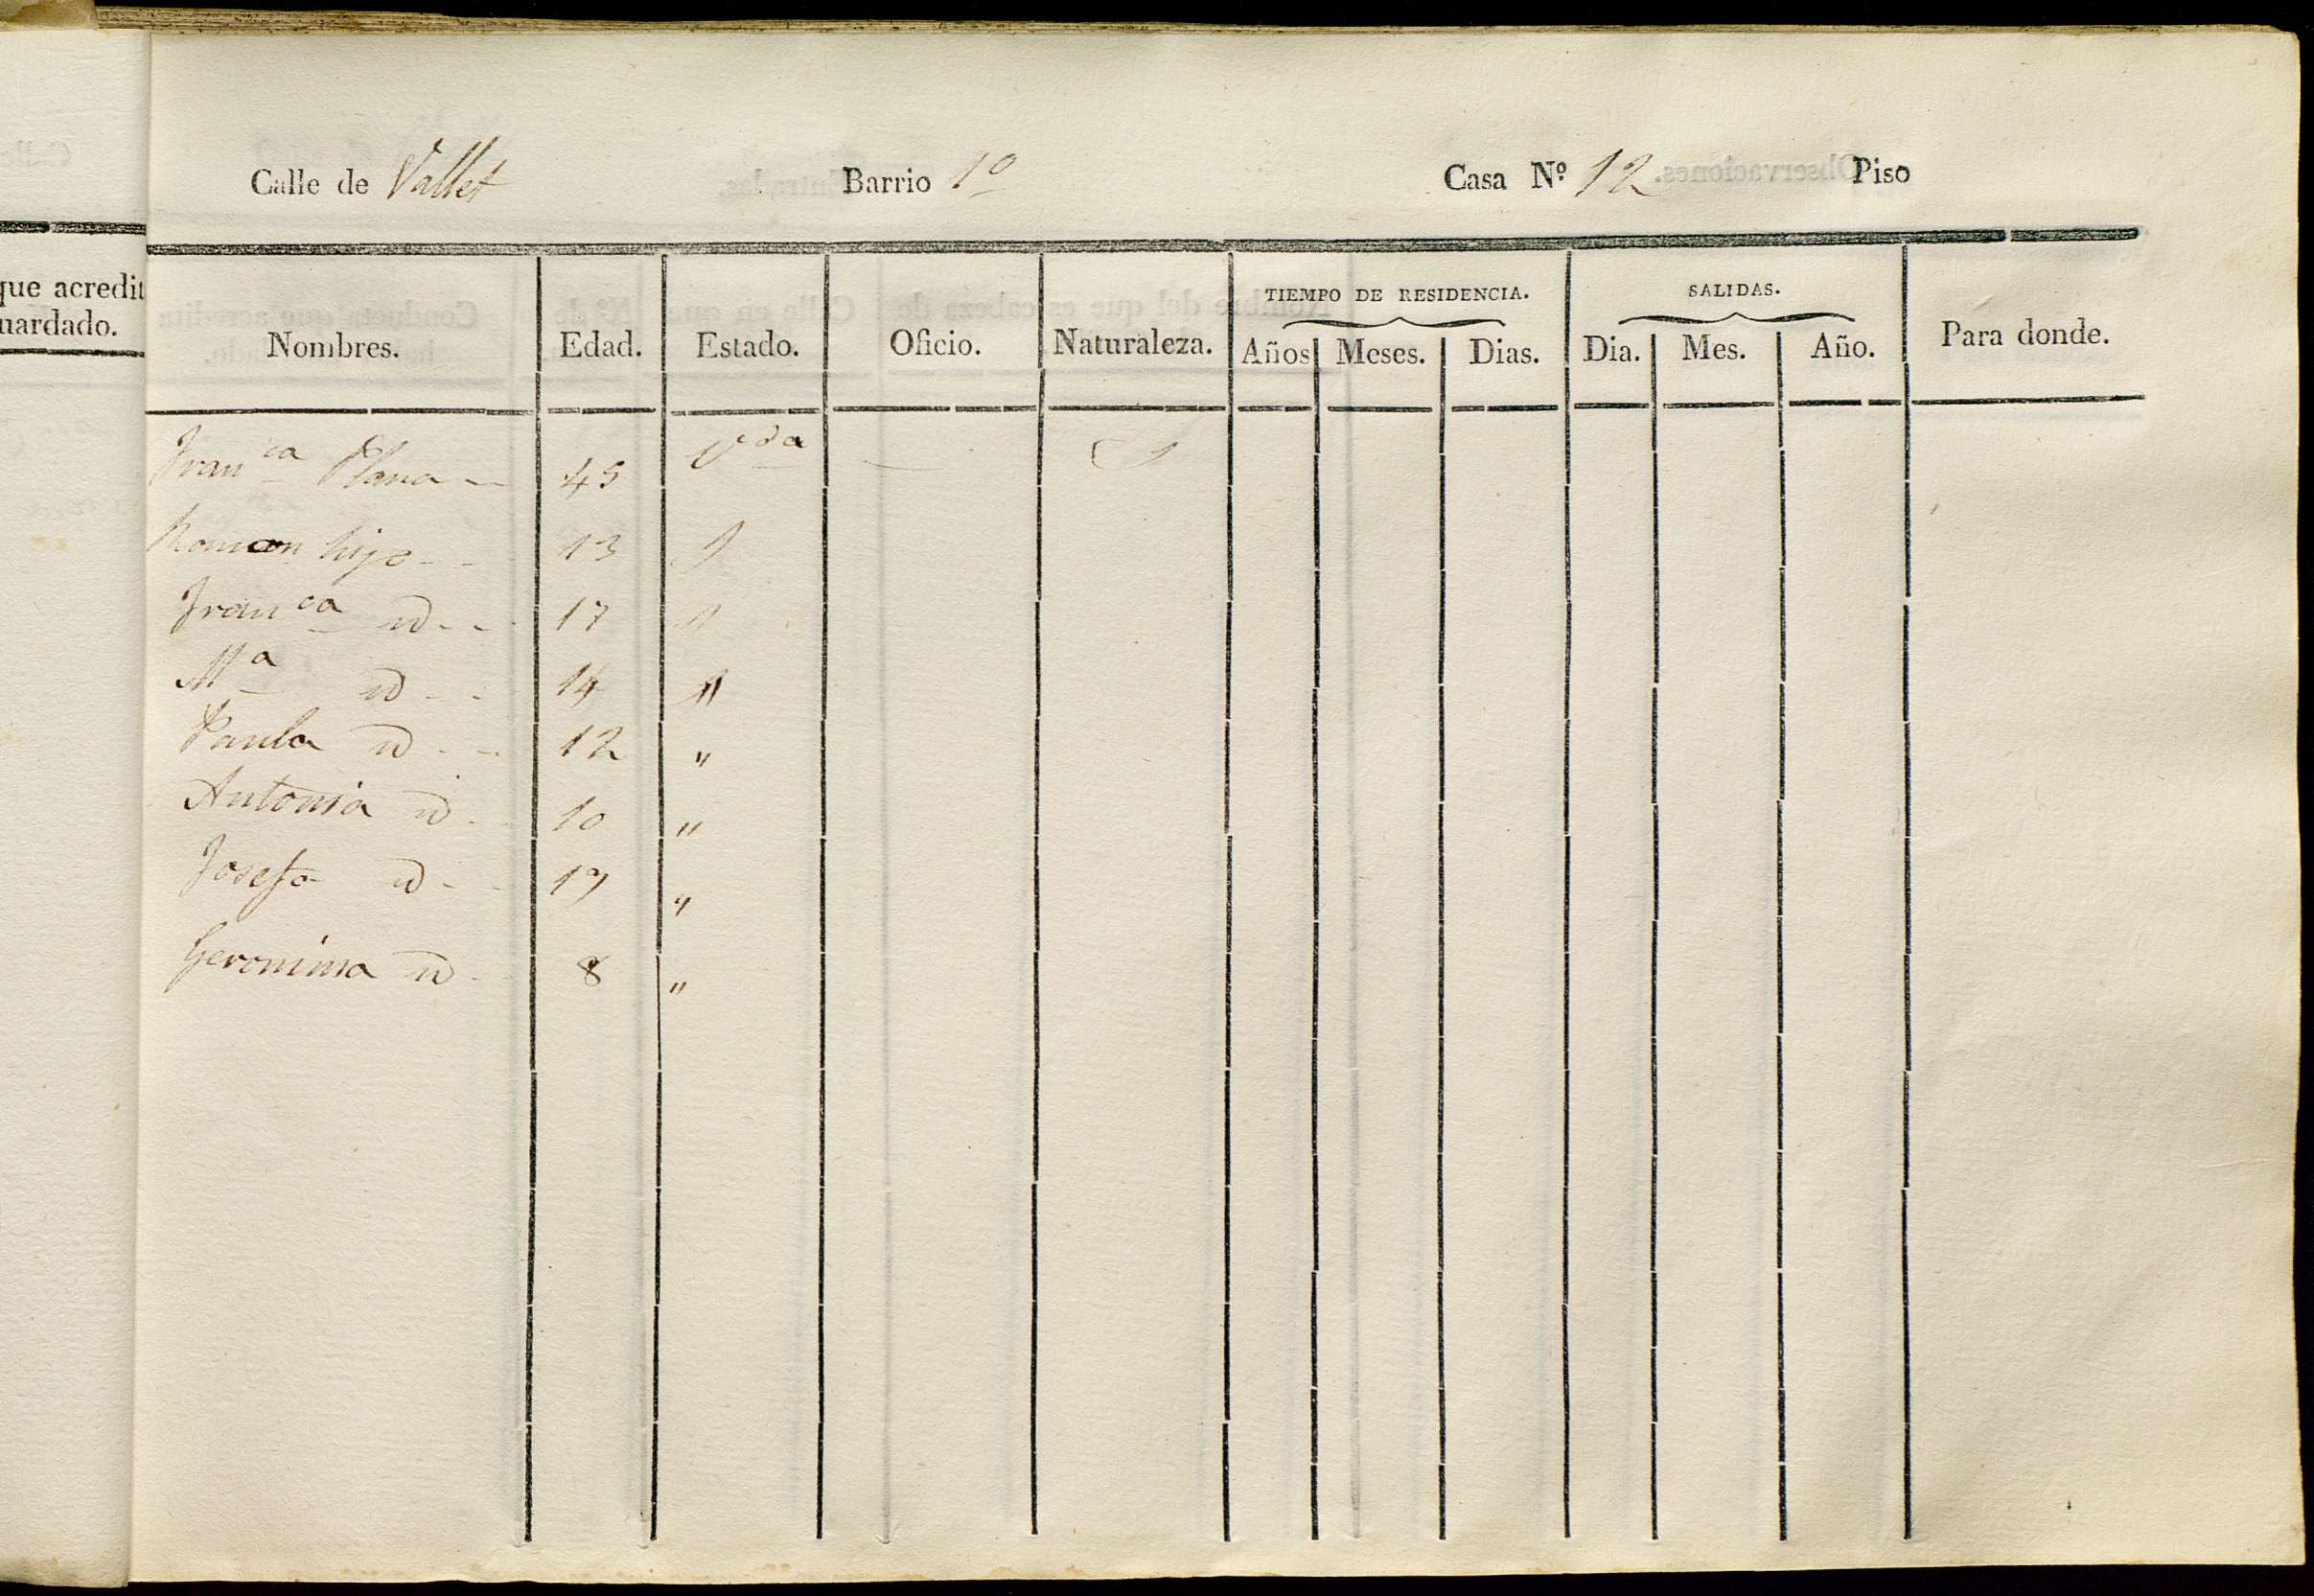 que acredit
uardado.
Calle de Vallet Barrio 1º Casa Nº 12 Piso
TIEMPO DE RESIDENCIA. SALIDAS.
Nombres. Edad. Estado. Oficio. Naturaleza. Años Meses. Dias. Dia. Mes. Año. Para donde.
Franca Plana — 45 Vda
Ramon hijo - - 13
Franca id - - 17
Ma id - - 14 "
Paula id - - 12 "
Antonia id - 10 "
Josefa id - - 17 "
Geronima id - 8 "